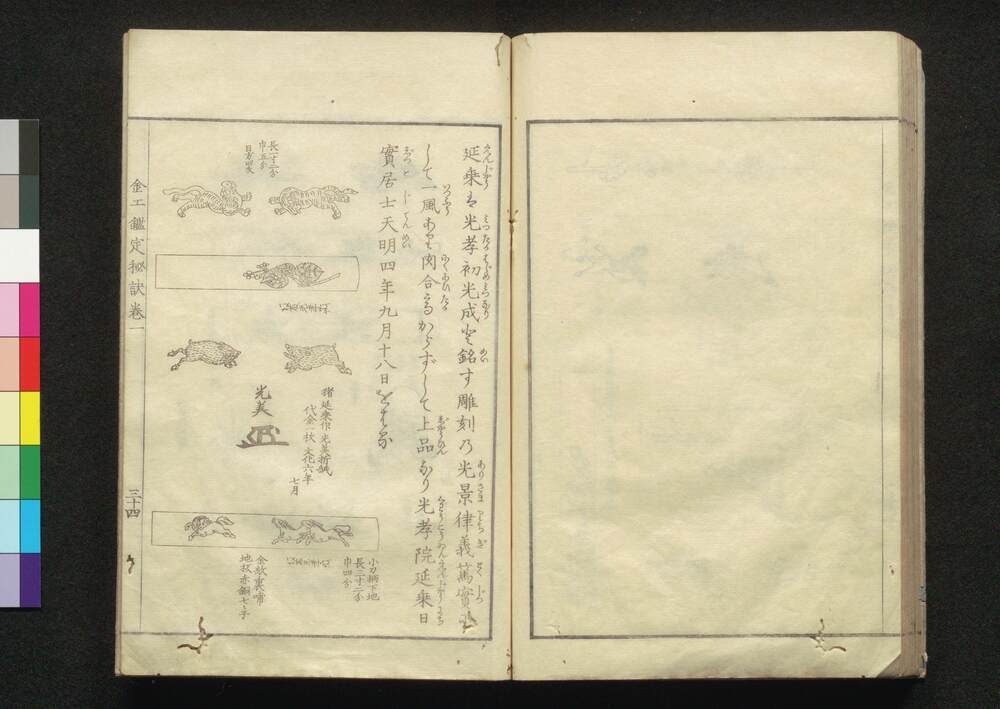 延乗は光孝初光成と銘す雕刻乃光景律義篤實に
して一風あり図合高からずして上品なり光孝院延乗日
實居士天明四年九月十八日
長一寸二分
巾五分
目方四匁
猪延乗作光美折紙
代金一枚文化六年
七月
光美
小刀柄下地
長三寸二分
巾四分
金紋裏哺
地板赤銅七々子
金工鑑定秘訣巻一
三十四